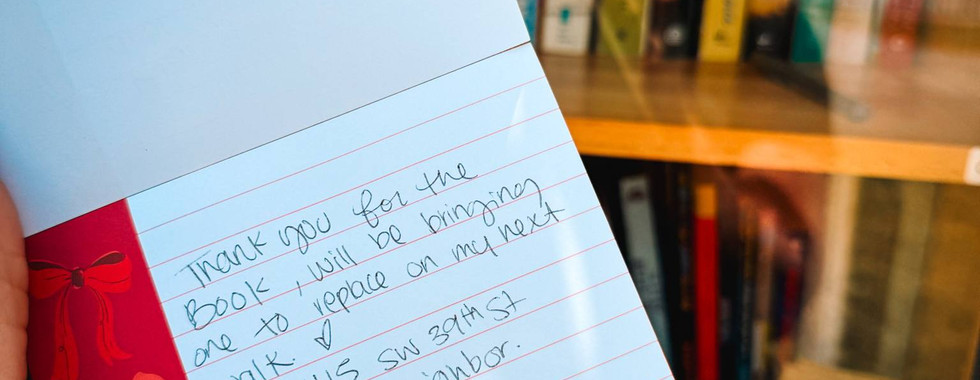 Thank you for the
Book, will be bringing
one to replace on my next
SW 39th St